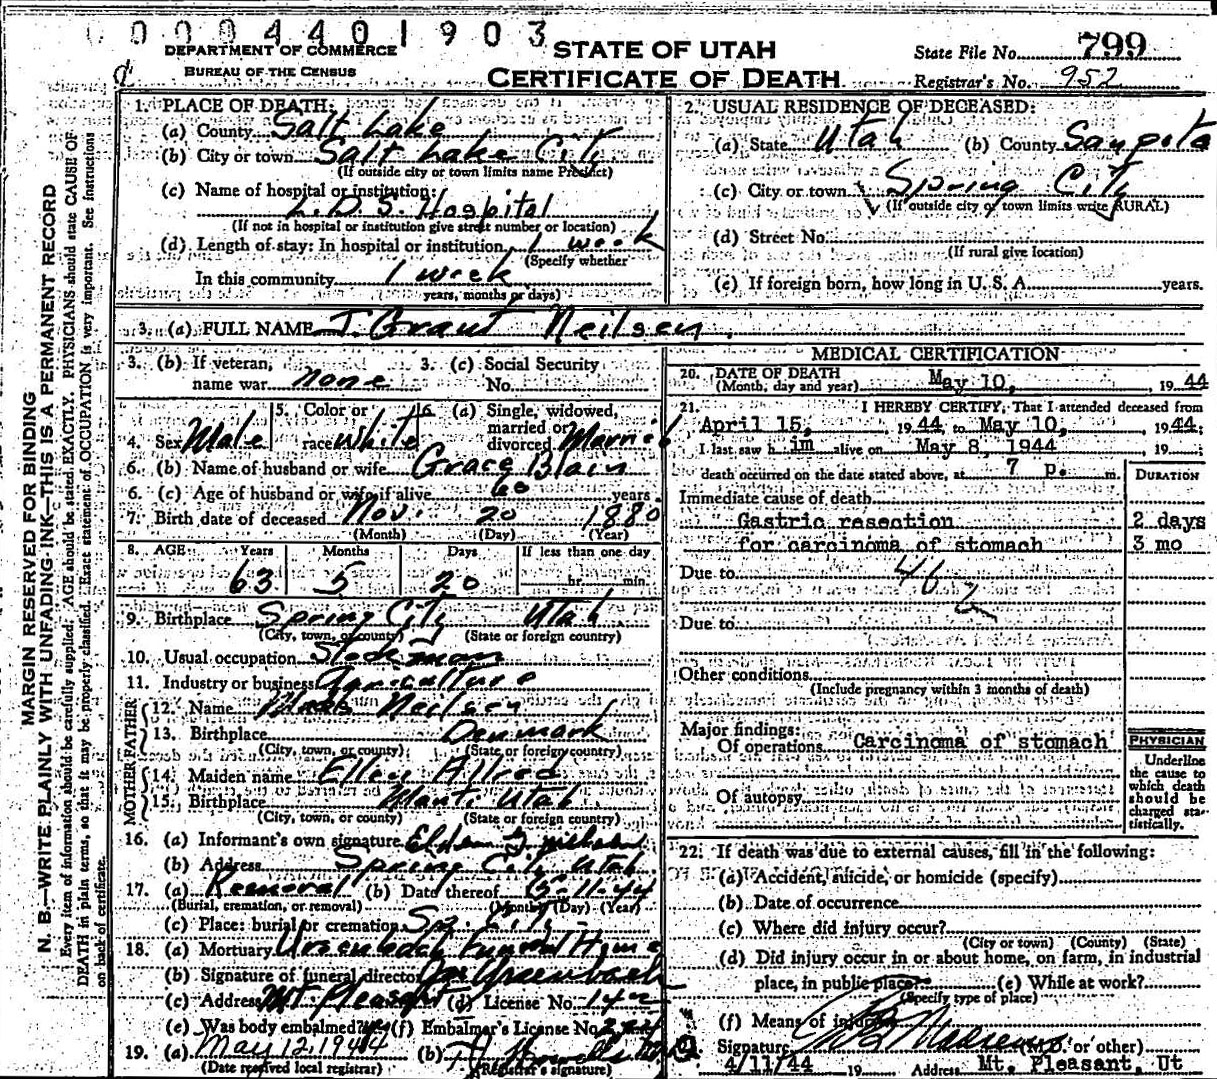 0004401903
DEPARTMENT OF COMMERCE
BUREAU OF THE CENSUS
STATE OF UTAH
CERTIFICATE OF DEATH
State File No. 799
Registrar's No. 952
MARGIN RESERVED FOR BINDING
N. B.—WRITE PLAINLY WITH UNFADING INK—THIS IS A PERMANENT RECORD
Every item of information should be carefully supplied. AGE should be stated EXACTLY. PHYSICIANS should state CAUSE OF
DEATH in plain terms, so that it may be properly classified. Exact statement of OCCUPATION is very important. See instructions
on back of certificate.
1. PLACE OF DEATH:
(a) County Salt Lake
(b) City or town Salt Lake City
(If outside city or town limits name Precinct)
(c) Name of hospital or institution:
L.D.S. Hospital
(If not in hospital or institution give street number or location)
(d) Length of stay: In hospital or institution 1 week
(Specify whether
In this community 1 week
years, months or days)
2. USUAL RESIDENCE OF DECEASED:
(a) State Utah (b) County Sanpete
(c) City or town Spring City
(If outside city or town limits write RURAL)
(d) Street No.
(If rural give location)
(e) If foreign born, how long in U. S. A. years.
3. (a) FULL NAME J. Grant Neilsen
3. (b) If veteran, name war none
3. (c) Social Security No.
4. Sex Male
5. Color or race White
6. (a) Single, widowed, married or divorced Married
6. (b) Name of husband or wife Grace Blain
6. (c) Age of husband or wife if alive 60 years.
7. Birth date of deceased Nov. 20 1880
(Month) (Day) (Year)
8. AGE Years Months Days If less than one day
63 5 20 hr. min.
9. Birthplace Spring City Utah
(City, town, or county) (State or foreign country)
10. Usual occupation Stockman
11. Industry or business Agriculture
FATHER
12. Name Neilsen
13. Birthplace Denmark
(City, town, or county) (State or foreign country)
MOTHER
14. Maiden name Ellen Allred
15. Birthplace Manti Utah
(City, town, or county) (State or foreign country)
16. (a) Informant's own signature
(b) Address Spring City Utah
17. (a) Removal (b) Date thereof 5-11-44
(Burial, cremation, or removal) (Month) (Day) (Year)
(c) Place: burial or cremation Sp. City
18. (a) Mortuary Ursenbach Funeral Home
(b) Signature of funeral director Ursenbach
(c) Address Mt Pleasant (d) License No. 142
(e) Was body embalmed? (f) Embalmer's License No.
19. (a) May 12, 1944 (b)
(Date received local registrar) (Registrar's signature)
MEDICAL CERTIFICATION
20. DATE OF DEATH
(Month, day and year) May 10, 1944
21. I HEREBY CERTIFY, That I attended deceased from
April 15, 1944, to May 10, 1944;
I last saw h im alive on May 8, 1944 19
death occurred on the date stated above, at 7 p. m.
DURATION
Immediate cause of death
Gastric resection 2 days
for carcinoma of stomach 3 mo
Due to
46
2
Due to
Other conditions
(Include pregnancy within 3 months of death)
Major findings:
Of operations Carcinoma of stomach
Of autopsy
PHYSICIAN
Underline
the cause to
which death
should be
charged sta-
tistically.
22. If death was due to external causes, fill in the following:
(a) Accident, suicide, or homicide (specify)
(b) Date of occurrence
(c) Where did injury occur?
(City or town) (County) (State)
(d) Did injury occur in or about home, on farm, in industrial
place, in public place? (e) While at work?
(Specify type of place)
(f) Means of injury
Signature (M.D. or other)
4/11/44 19 Address Mt. Pleasant, Ut